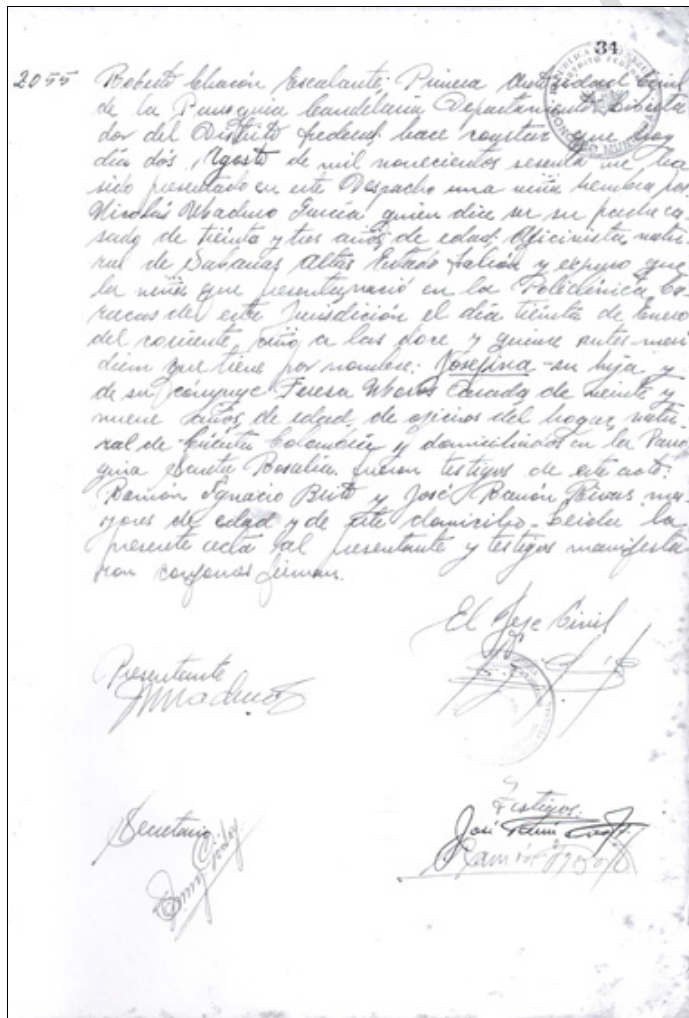 34
2055 Roberto Chacón Escalante, Primera Autoridad Civil
de la Parroquia Candelaria Departamento Liberta
dor del Distrito federal hace constar que hoy
día dos, Agosto de mil novecientos sesenta me ha
sido presentado en este Despacho una niña hembra por
Nicolás Maduro García quien dice ser su padre ca-
sado de treinta y tres años de edad, Oficinista, natu-
ral de Sabanas Altas Estado Falcón y expuso que
la niña que presenta nació en la Policlínica Ca-
racas de esta Jurisdicción el día treinta de Enero
del corriente, año a las doce y quince antes-meri
diem que tiene por nombre: Josefina - su hija y
de su cónyuge Teresa Moros Casada de veinte y
nueve años de edad, de oficios del hogar, natu-
ral de Cúcuta Colombia y domiciliados en la Parro
quia Santa Rosalía. fueron testigos de este acto:
Ramón Ignacio Brito y José Ramón Rivas ma-
yores de edad y de este domicilio. Leida la
presente acta al presentante y testigos manifesta
ron conformes firman.
El Jefe Civil
Presentante
NMaduro
Secretario
Testigos.
José Ramón
Ramón